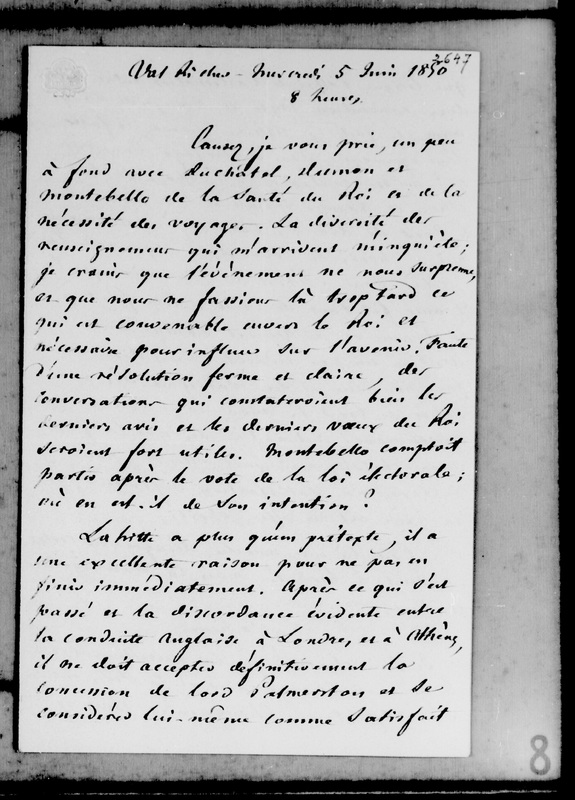 2647
Val Richer - Mercredi 5 Juin 1850
8 heures
Causez, je vous prie, un peu
à fond avec Duchâtel, Dumon et
Montebello de la Santé du Roi et de la
nécessité des voyages. La diversité des
renseignemens qui m'arrivent m'inquiète ;
je crains que l'évènement ne nous surprenne,
et que nous ne fassions là trop tard ce
qui est convenable envers le Roi et
nécessaire pour influer sur l'avenir. Faute
d'une résolution ferme et claire, des
conversations qui constateroient bien les
derniers avis et les derniers voeux du Roi
seroient fort utiles. Montebello comptoit
partir après le vote de la loi électorale ;
où en est-il de son intention ?
Lahitte a plus qu'un prétexte, il a
une excellente raison pour ne pas en
finir immédiatement. Après ce qui s'est
passé et la discordance évidente entre
la conduite Anglaise à Londres, et à Athènes,
il ne doit accepter définitivement la
concession de lord Palmerston et se
considérer lui-même comme satisfait
8